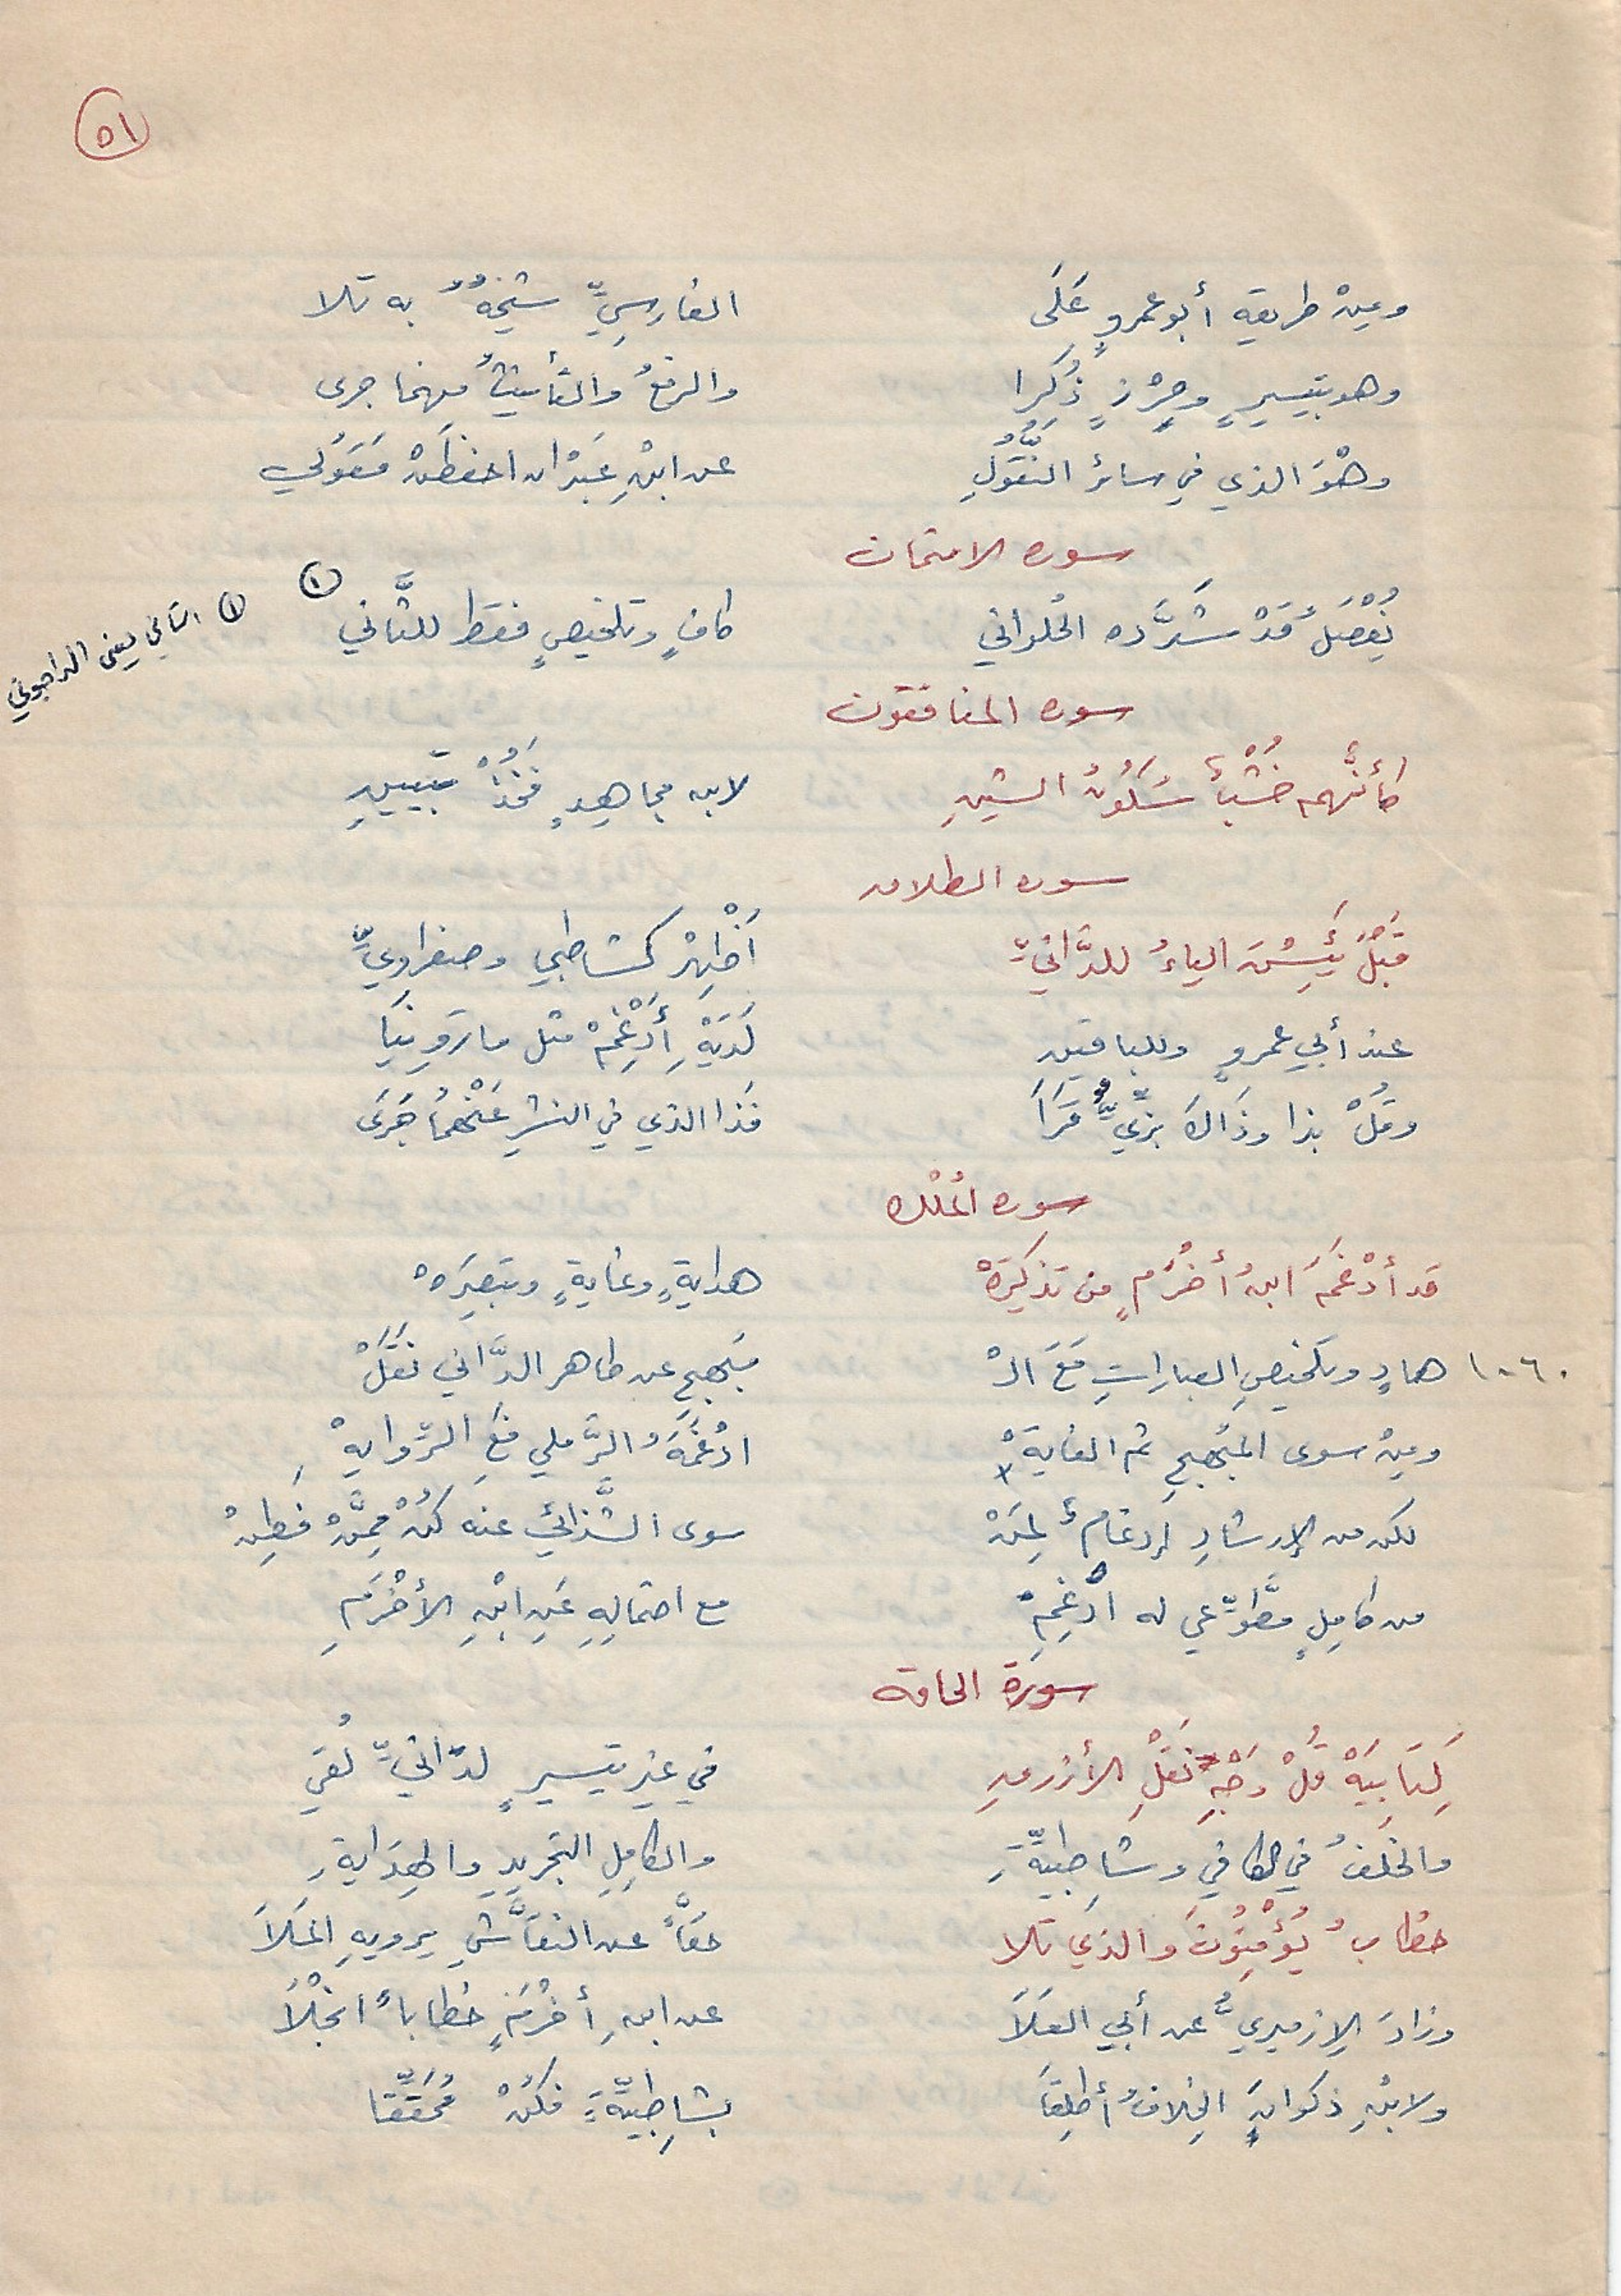 ٥١
ومِنْ طريقهِ أبو عمروٍ عَلَى الفارسيِّ شيخهُ به تلا
وهو بتيسيرٍ وحِرْزٍ ذُكِرا والرفعُ والتأنيثُ مهما جرى
وهْوَ الذي في سائر النُّقُولِ عن ابنِ عَبْدانَ احفظَنْ مَقُولي
سورة الامتحان
يُفْصَلُ قَدْ شَدَّده الحُلواني كافٍ وتلخيصٍ فقط للثَّاني (١)
(١) الثاني يعني الداجوني
سورة المنافقون
كأنَّهم خُشْبٌ سُكُونُ الشينِ لابن مجاهدٍ فَخُذْ تبييني
سورة الطلاق
قَبْلَ يَئِسْنَ الياءُ للدَّانيِّ أَظْهِرْ كشاطبي وصفراويِّ
عند أبي عمروٍ وللباقين لَدَيْهِ أَدْغِمْ مثل ما روينا
وقُلْ بذا وذَاكَ بزِّيٌّ قَرَا فذا الذي في النشرِ عَنْهُمَا جَرَى
سورة المُلْك
قد أدْغَمَ ابنُ أخْرَمٍ من تذكِرَهْ هدايةٍ وغايةٍ وتبصِرَهْ
١٠٦٠ هادٍ وتلخيصِ العباراتِ مَعَ الْ مُبْهِجِ عن طاهر الدَّاني نَقَلْ
ومِنْ سوى المبْهِجِ ثم الغايَةْ ادْغَمَهُ الرَّملي فَعِ الرِّوايهْ
لكن من الإرشادِ إدغامٌ لِمَنْ سوى الشَّذائي عنه كُنْ مِمَّنْ فَطِنْ
من كامِلٍ مطَّوِّعي له ادْغِمِ مع احتمالِهِ عَنِ ابْنِ الأخْرَمِ
سورة الحاقة
كِتَابِيَهْ قُلْ وَجْهُ نَقْلِ الأزرقِ في غير تيسيرٍ لدّانيِّ لُقِي
والخلفُ في الكافي وشاطبيَّةِ والكامِلِ التجريدِ والهِدَايةِ
خطابُ يُؤْمِنُونَ والذي تلا حقَّاً عن النقَّاشِ يرويهِ المَلَا
وزادَ الإزميريُّ عن أبي العَلَا عن ابنِ أخْرَمٍ خطاباً انْجَلَا
ولابْنِ ذكوانَ الخِلافُ أُطلِقَا بشاطِبيَّةٍ فكُنْ مُحَقِّقَا